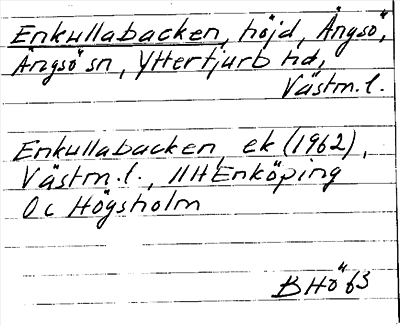 Enkullabacken, höjd, Ängsö,
Ängsö sn, Yttertjurbo hd,
Västm.l.
Enkullabacken ek (1962),
Västm.l., 11H Enköping
0c Högsholm
BHö 63